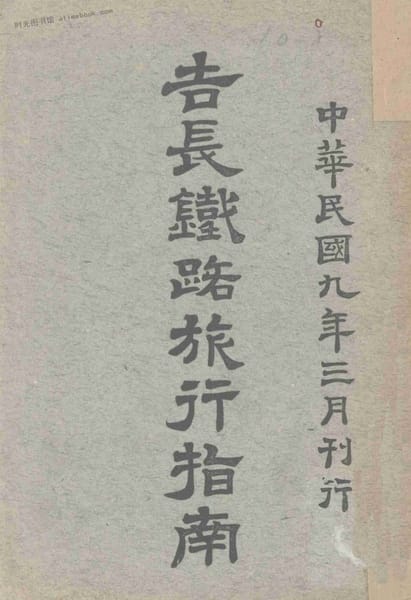 时光图书馆 alimebook.com
中華民國九年三月刊行
吉長鐵路旅行指南